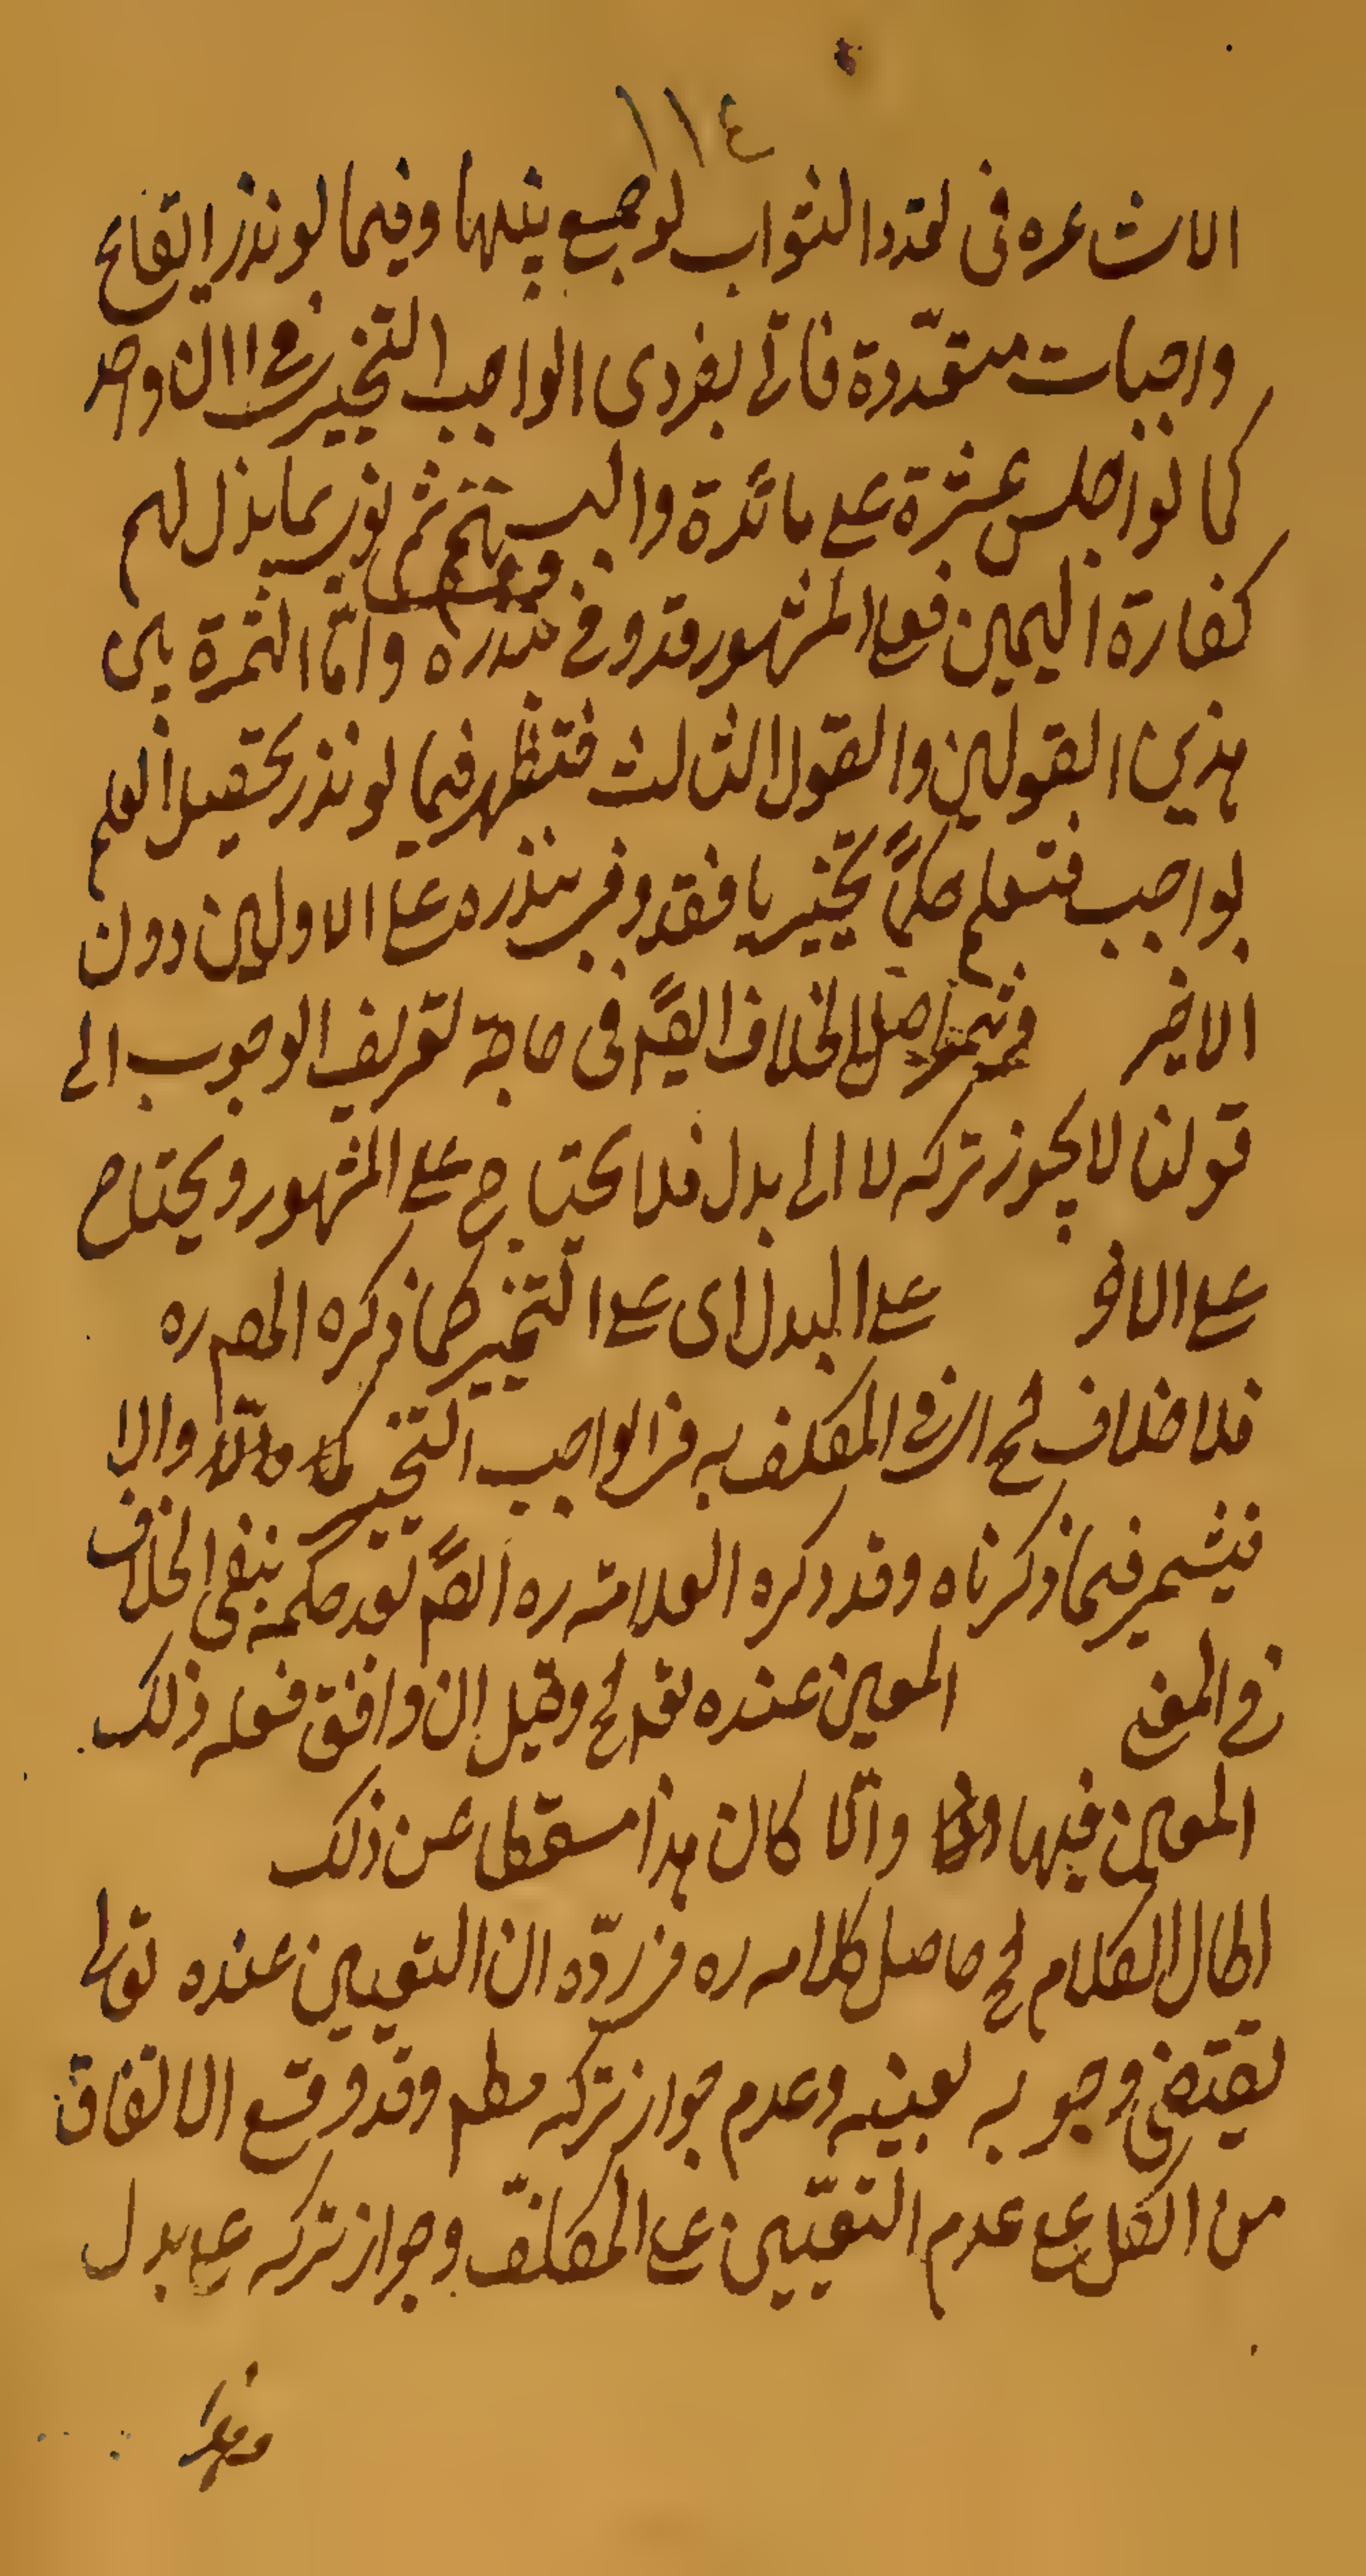 ١١٤
الاشاعره فى تعدد الثواب لو جمع بينها وفيما لو نذر ايقاع
واجبات متعدّدة فاتى بفردى الواجب التخييرى فى ان واحد
كما لو اجلس عشرة على مائدة والبستهم ثم نوى بما بذل لهم
كفارة اليمين فعلى المشهور قد وفى بنذره وامّا الثمرة بين
هذين القولين والقول الثالث فتظهر فيما لو نذر تحصيل العلم
بواجب فتعلم حكمًا تخييريا فقد وفى بنذره على الاولين دون
الاخير اصل الخلاف ايضًا فى حاجة تعريف الوجوب الى
قولنا لا يجوز تركه لا الى بدل فلا يحتاج ح على المشهور ويحتاج
على الاخر على البدل اى على التخيير كما ذكره المصم ره
فلا خلاف لح ان فى المكلف به فى الواجب التخيير والا
فيثمر فيما ذكرناه وقد ذكره العلامة ره ايضًا بعد حكمه بنفى الخلاف
فى المعنى المعين عنده تعه لح وقيل ان وافق فعله ذلك
المعين فيها والّا كان هذا مسقطا عن ذلك
اطال الكلام لح حاصل كلامه ره فى ردّه ان التعيين عنده تعالى
يقتضى وجوبه بعينه وعدم جواز تركه مطم وقد وقع الاتفاق
من الكل على عدم التعيّين على المكلّف وجواز تركه على بدل